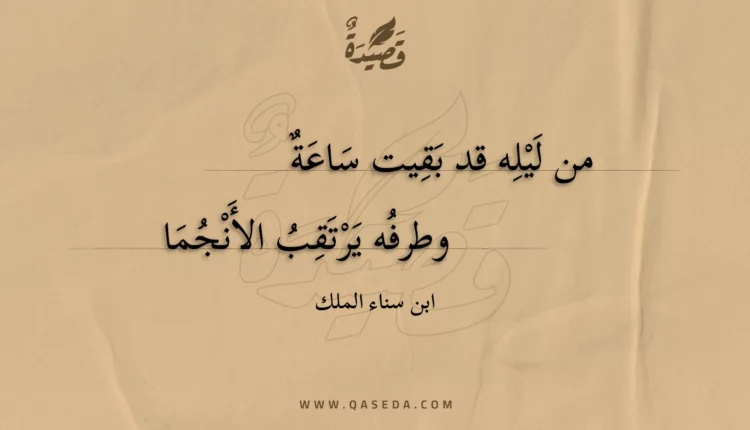 قَصِيدَةٌ
من لَيْلِه قد بَقِيت سَاعَةٌ
وطرفُه يَرْتَقِبُ الأَنْجُمَا
ابن سناء الملك
WWW.QASEDA.COM